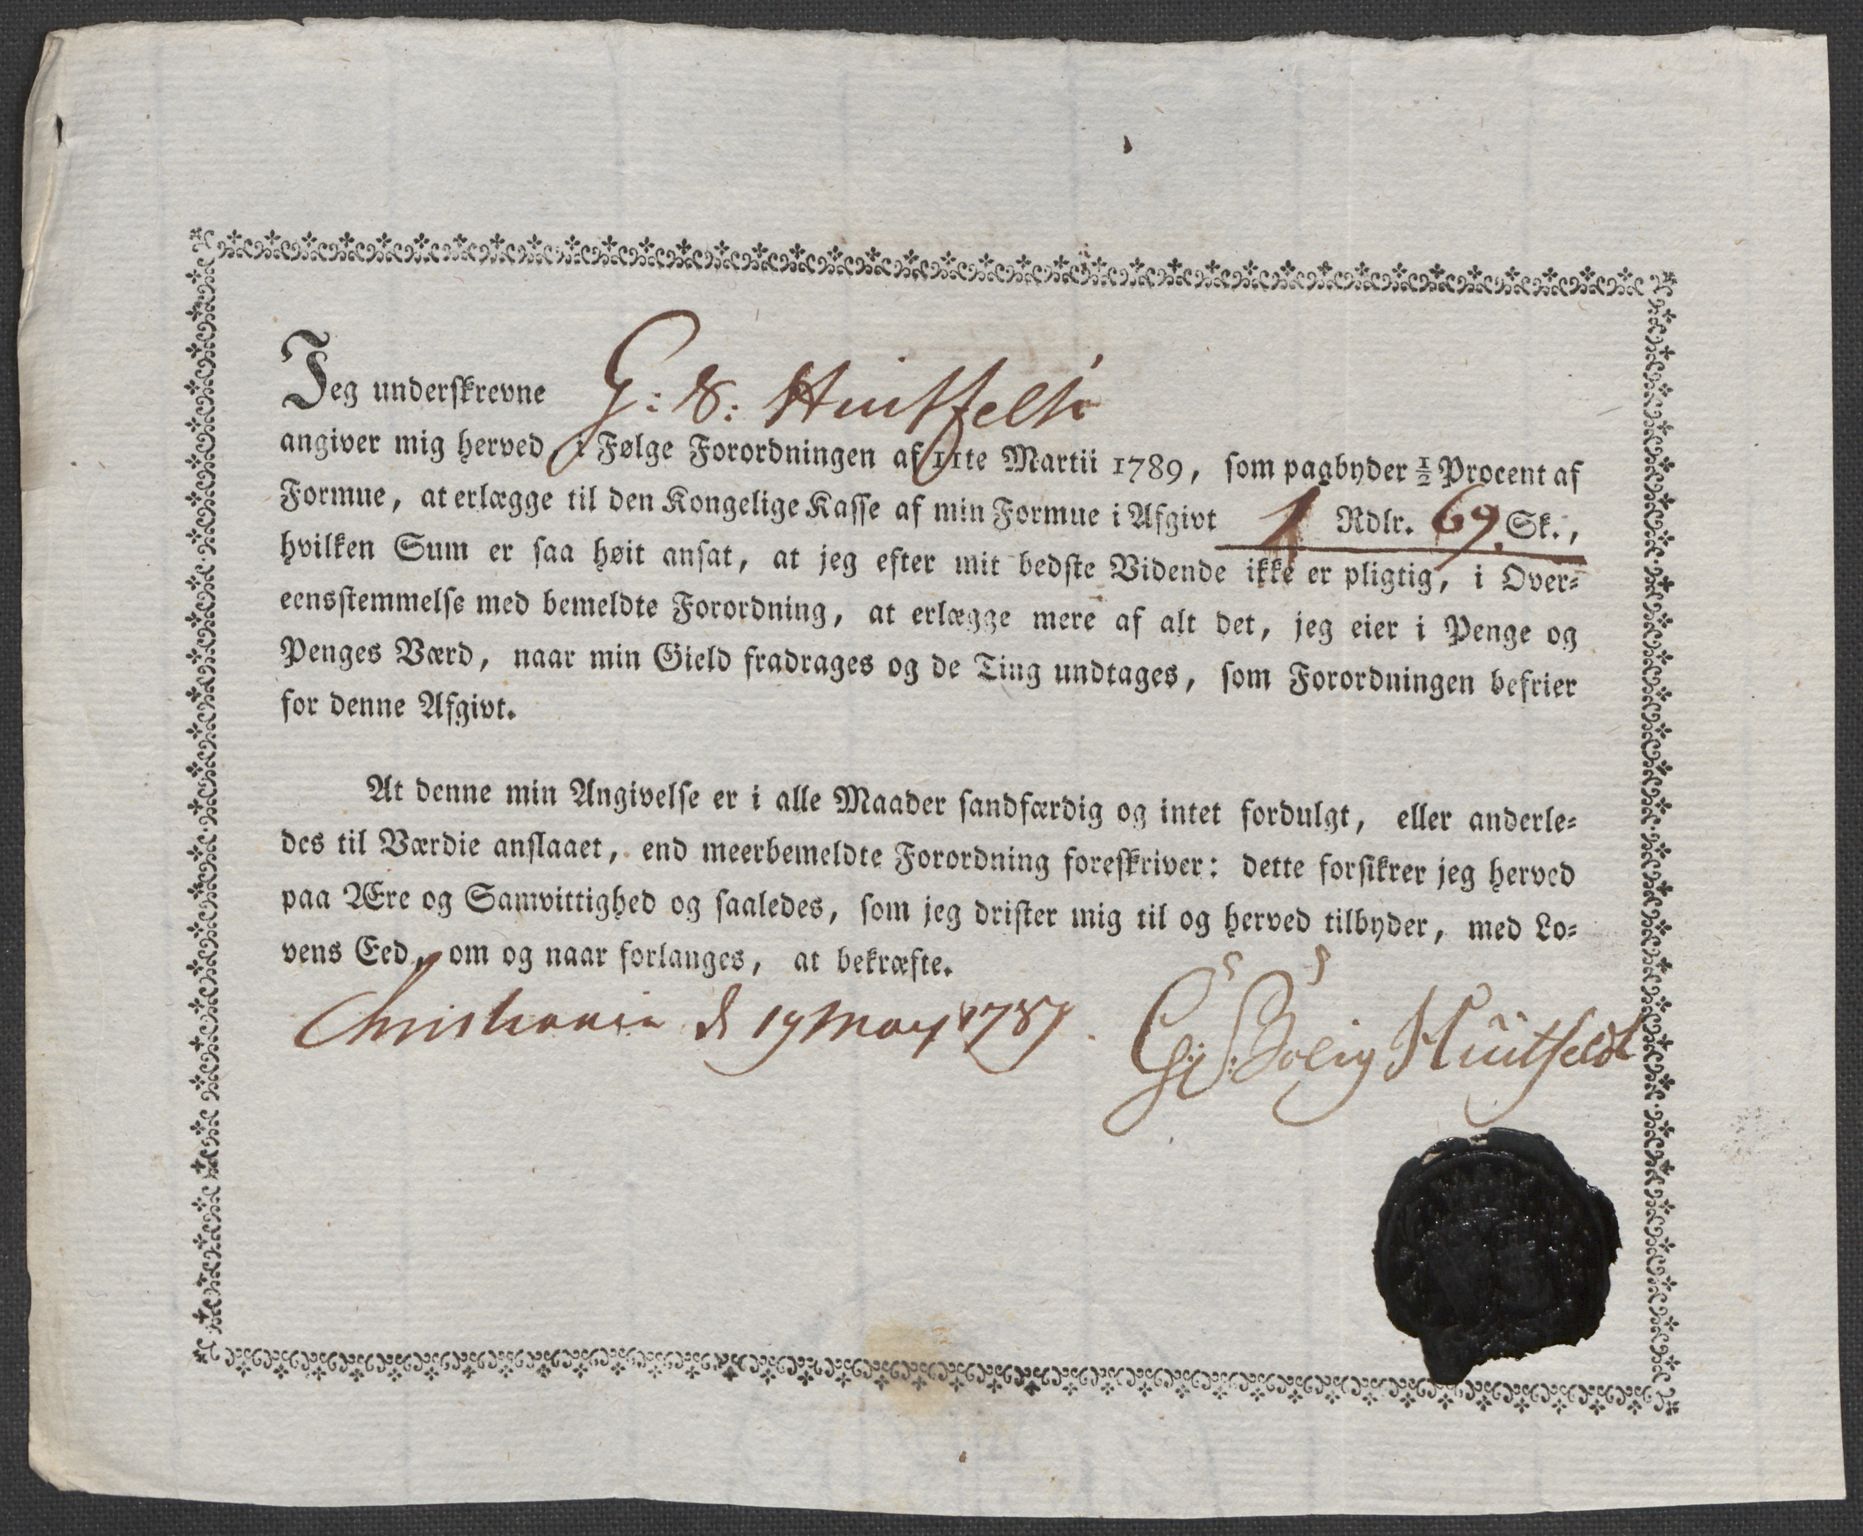 Jeg underskrevne G: S: Huitfeldt
angiver mig herved, i Følge Forordningen af 11te Martii 1789, som paabyder ½ Procent af
Formue, at erlægge til den Kongelige Kasse af min Formue i Afgivt 1 Rdlr. 69 Sk.,
hvilken Sum er saa høit ansat, at jeg efter mit bedste Vidende ikke er pligtig, i Over-
eensstemmelse med bemeldte Forordning, at erlægge mere af alt det, jeg eier i Penge og
Penges Værd, naar min Gield fradrages og de Ting undtages, som Forordningen befrier
for denne Afgivt.
At denne min Angivelse er i alle Maader sandfærdig og intet fordulgt, eller anderle-
des til Værdie anslaaet, end meerbemeldte Forordning foreskriver: dette forsikrer jeg herved
paa Ære og Samvittighed og saaledes, som jeg drister mig til og herved tilbyder, med Lo-
vens Eed, om og naar forlanges, at bekræfte.
Christiania d 19 May 1789. Huitfeldt